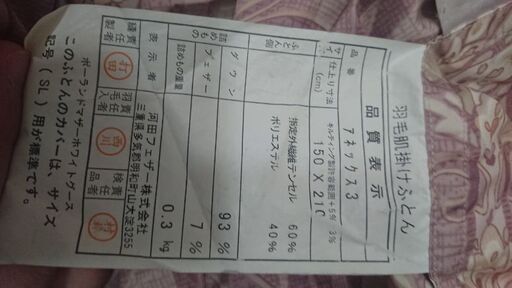 羽毛肌掛けふとん
品質表示
品番 アネックス3
サイズ 仕上り寸法(cm) キルティング製許容範囲+5% 3%
150 X 210
ふとん側 指定外繊維テンセル 60%
ポリエステル 40%
詰めもの ダウン 93%
フェザー 7%
詰めもの重量 0.3 kg
表示者 河田フェザー株式会社
三重県多気郡明和町山大淀3255
縫製責任者 打田 羽毛責任者 西川 検品責任者
ポーランドマザーホワイトグース
このふとんのカバーは、サイズ
記号(SL)用が標準です。